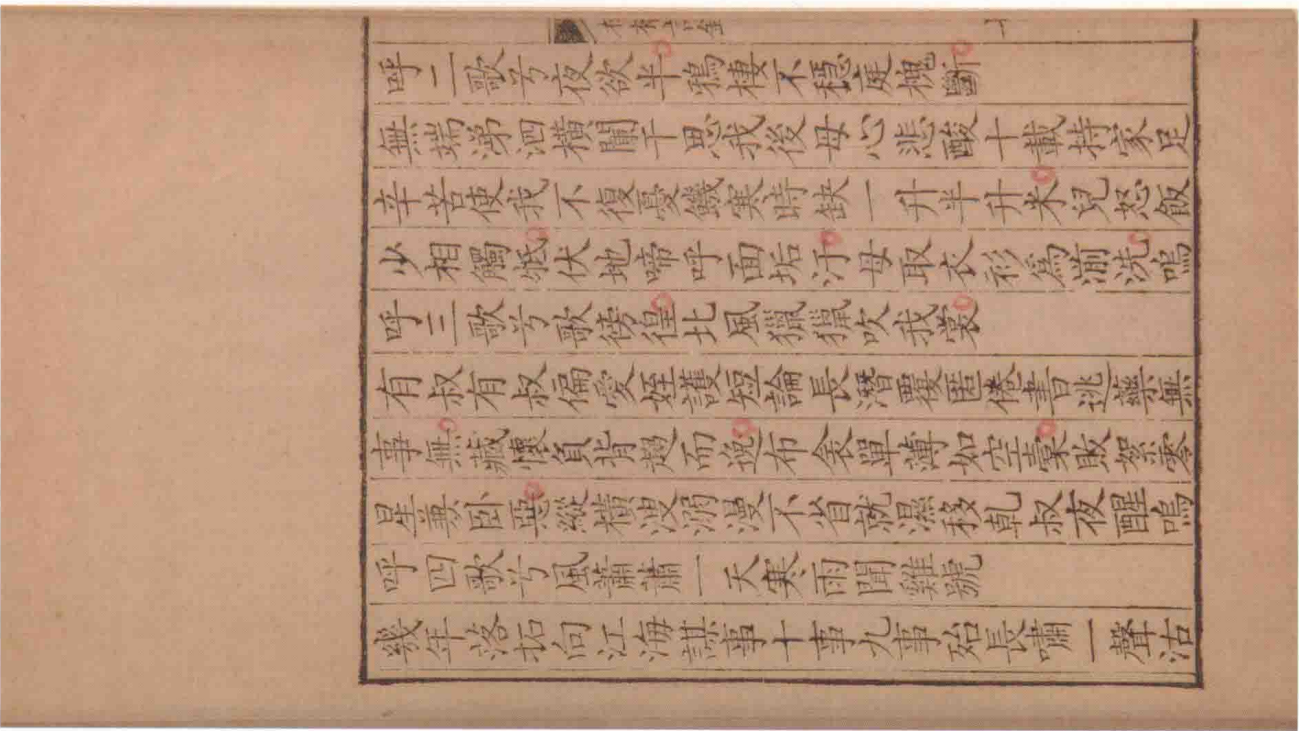 呼二歌兮夜欲半鴉棲不穩庭槐斷
無端涕泗橫闌干思我後母心悲酸十載持家足
辛苦使我不復憂饑寒時缺一升半升米兒怒飯
少相觸牴伏地啼呼面垢汙母取衣衫為湔洗嗚
呼三歌兮歌徬徨北風獵獵吹我裳
有叔有叔偏愛姪護短論長潛覆匿倦書逃藥無
事無藏懷負背趨而逸布衾單薄如空橐敗絮零
星兼臥惡縱橫溲溺漫不省就濕移乾叔夜醒嗚
呼四歌兮風蕭蕭一天寒雨聞雞號
幾年落拓向江海謀事十事九事殆長嘯一聲沽